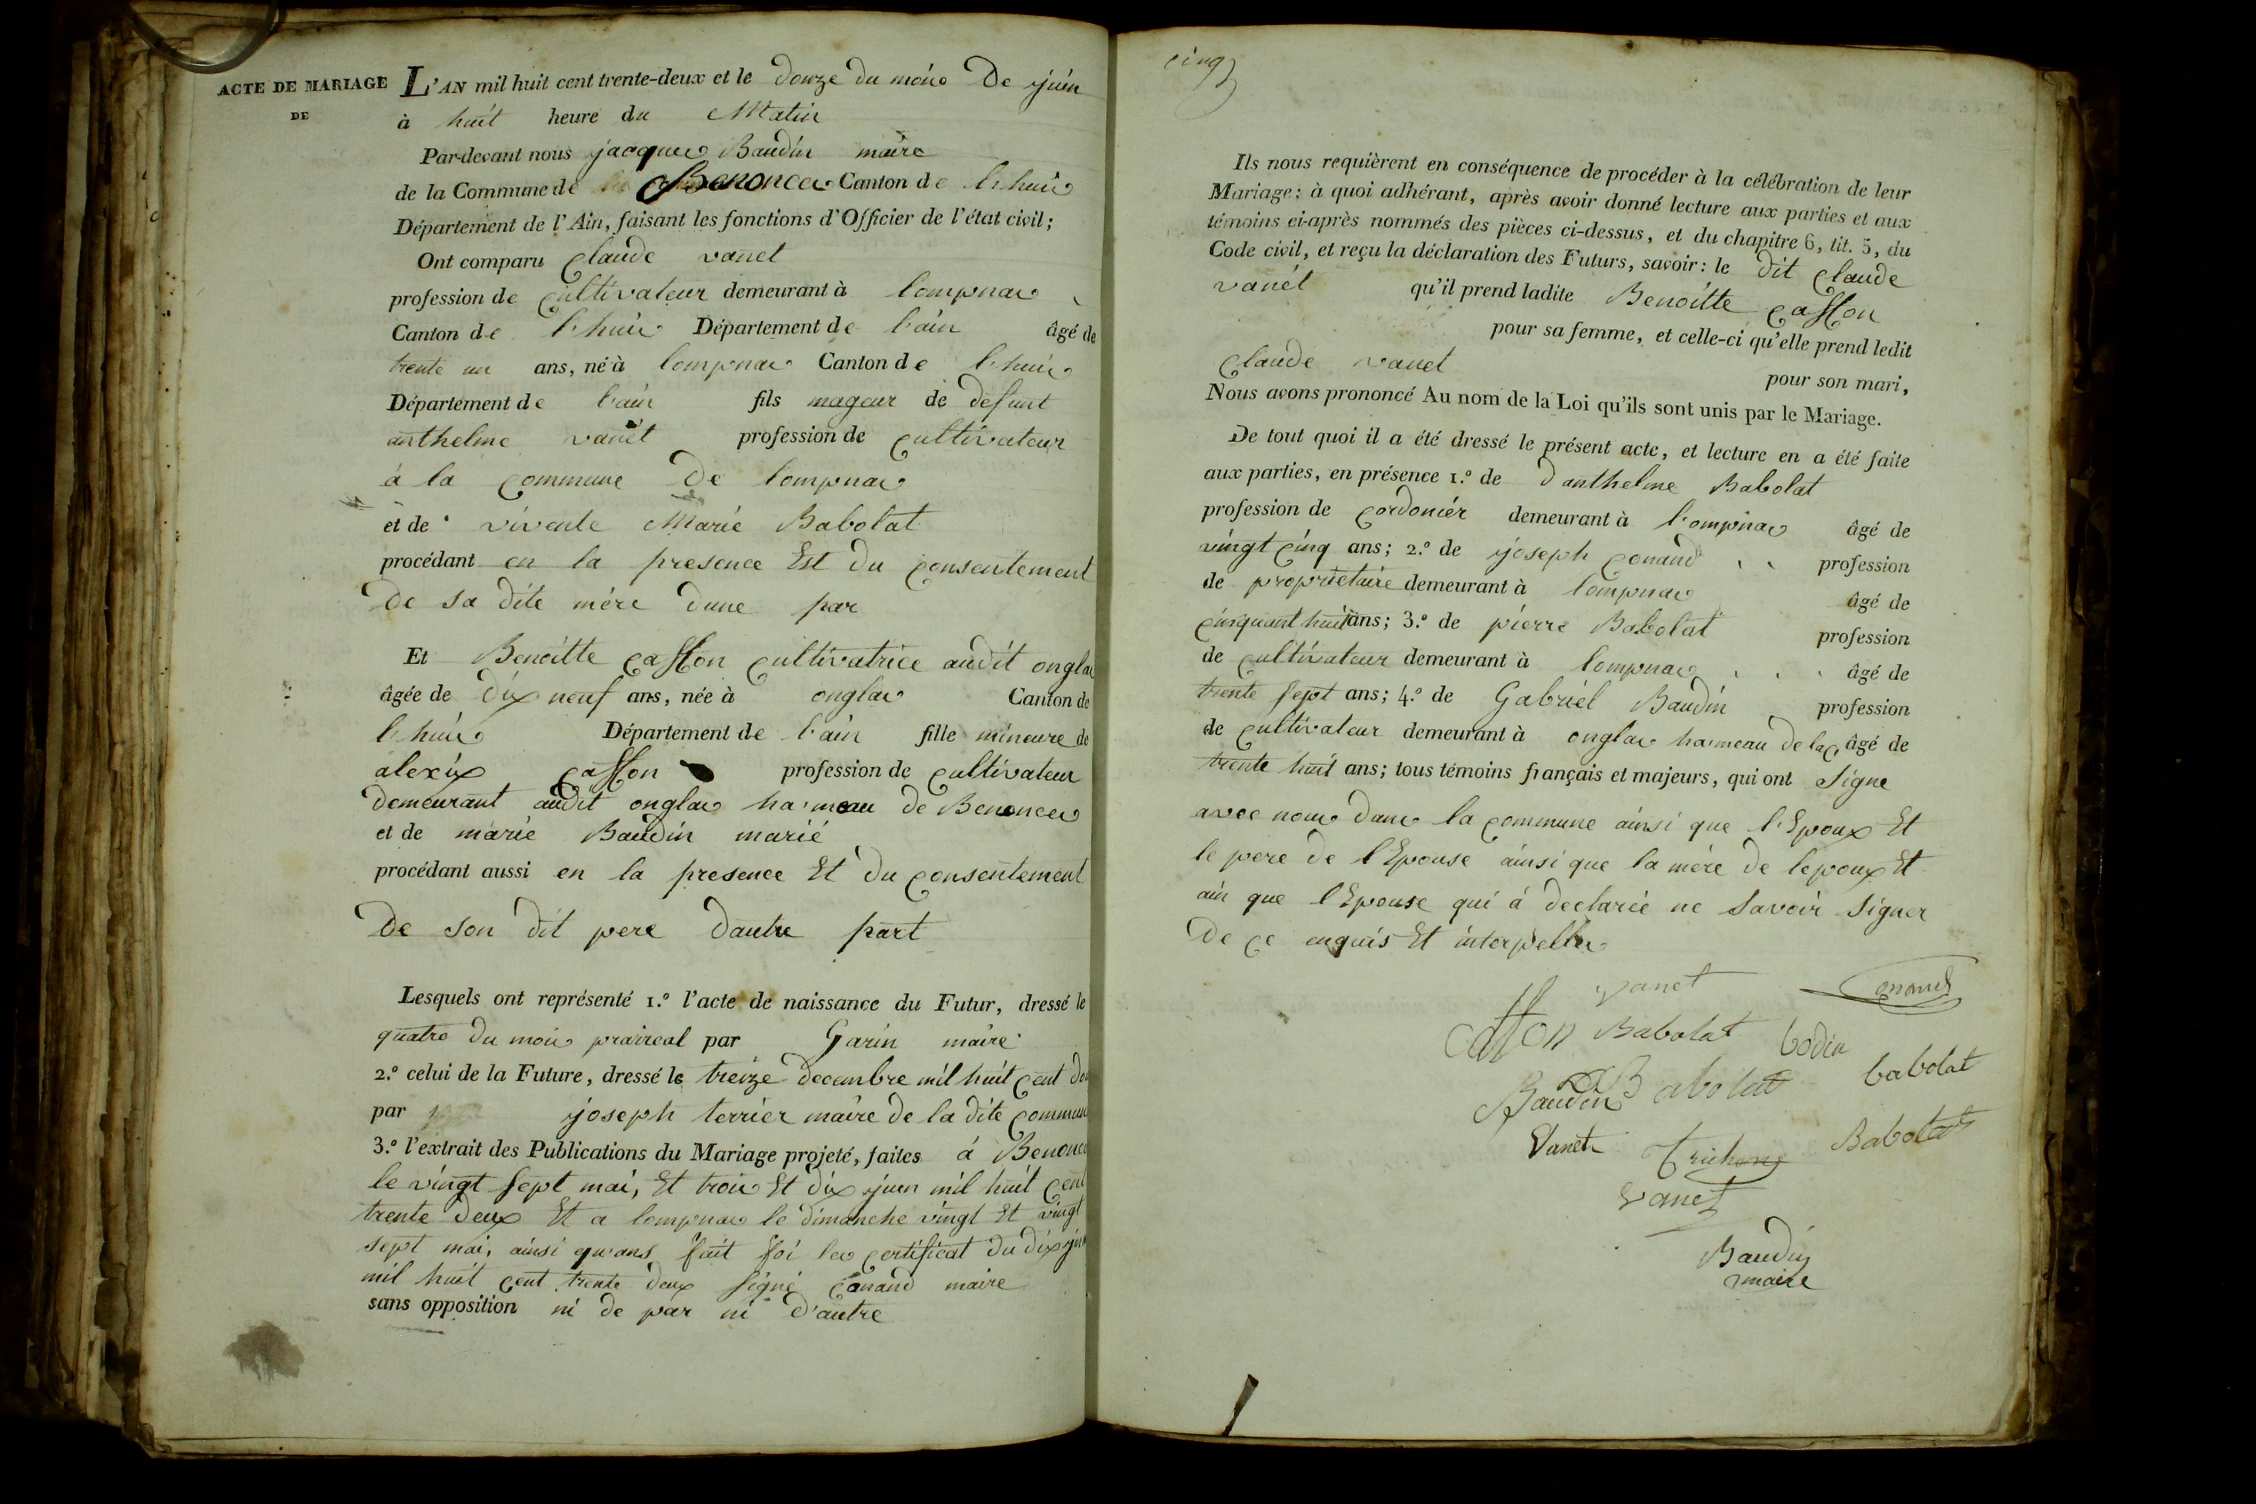 ACTE DE MARIAGE
DE
L'AN mil huit cent trente-deux et le douze du mois De juin
à huit heure du Matin
Par-devant nous jacques Baudin maire
de la Commune de Benonces Canton de lhuis
Département de l'Ain, faisant les fonctions d'Officier de l'état civil;
Ont comparu Claude vanet
profession de Cultivateur demeurant à lompnas
Canton de lhuis Département de l'ain âgé de
trente un ans, né à lompnas Canton de lhuis
Département de l'ain fils mageur de defunt
anthelme vanet profession de Cultivateur
à la Commune De lompnas
et de vivente Marie Babolat
procédant en la presence Est du Consentement
De sa dite mère dune par
Et Benoitte Casson Cultivatrice audit onglas
âgée de dix neuf ans, née à onglas Canton de
lhuis Département de l'ain fille mineure de
alexix Casson profession de Cultivateur
demeurant audit onglas hameau de Benonces
et de marie Baudin marié
procédant aussi en la presence Et du Consentement
De son dit pere dautre part
Lesquels ont représenté 1.º l'acte de naissance du Futur, dressé le
quatre du mois praireal par Garin maire
2.º celui de la Future, dressé le treize decembre mil huit Cent
par joseph terrier maire de la dite Commune
3.º l'extrait des Publications du Mariage projeté, faites à Benonces
le vingt sept mai, Et trois Et dix juin mil huit Cent
trente deux Et a lompnas le dimanche vingt Et vingt
sept mai, ainsi quans fait foi les Certificat du dix juin
mil huit Cent trente deux Signé Conand maire
sans opposition ni de par ni d'autre
cinq
Ils nous requièrent en conséquence de procéder à la célébration de leur
Mariage: à quoi adhérant, après avoir donné lecture aux parties et aux
témoins ci-après nommés des pièces ci-dessus, et du chapitre 6, tit. 5, du
Code civil, et reçu la déclaration des Futurs, savoir: le dit Claude
vanet qu'il prend ladite Benoitte Casson
pour sa femme, et celle-ci qu'elle prend ledit
Claude vanet pour son mari,
Nous avons prononcé Au nom de la Loi qu'ils sont unis par le Mariage.
De tout quoi il a été dressé le présent acte, et lecture en a été faite
aux parties, en présence 1.º de d'anthelme Babolat
profession de Cordonier demeurant à lompnas âgé de
vingt Cinq ans; 2.º de joseph Conand profession
de proprietaire demeurant à lompnas âgé de
Cinquant huit ans; 3.º de pierre Babolat profession
de Cultivateur demeurant à lompnas âgé de
trente Sept ans; 4.º de Gabriel Baudin profession
de Cultivateur demeurant à onglas hameau de la C. âgé de
trente huit ans; tous témoins français et majeurs, qui ont Signe
avec nous dans la Commune ainsi que l'Epoux Et
le pere de l'Epouse ainsi que la mère de lepoux Et
ain que l'Epouse qui á declarée ne Savoir Signer
De Ce enquis Et interpelles
vanet
Conand
Casson Babolat bodin
Baudin Babolat babolat
Vanet Trichon Babolat
vanet
Baudin
maire